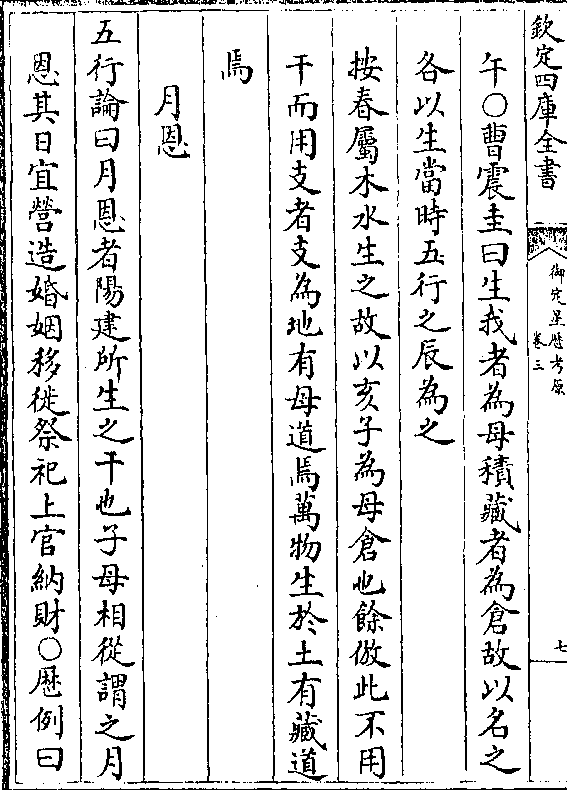 欽定四庫全書
御定星歴考原
卷三
七
午○曹震圭曰生我者為母積藏者為倉故以名之
各以生當時五行之辰為之
按春屬木水生之故以亥子為母倉也餘倣此不用
干而用支者支為地有母道焉萬物生於土有藏道
焉
月恩
五行論曰月恩者陽建所生之干也子母相從謂之月
恩其日宜營造婚姻移徙祭祀上官納財○歴例曰